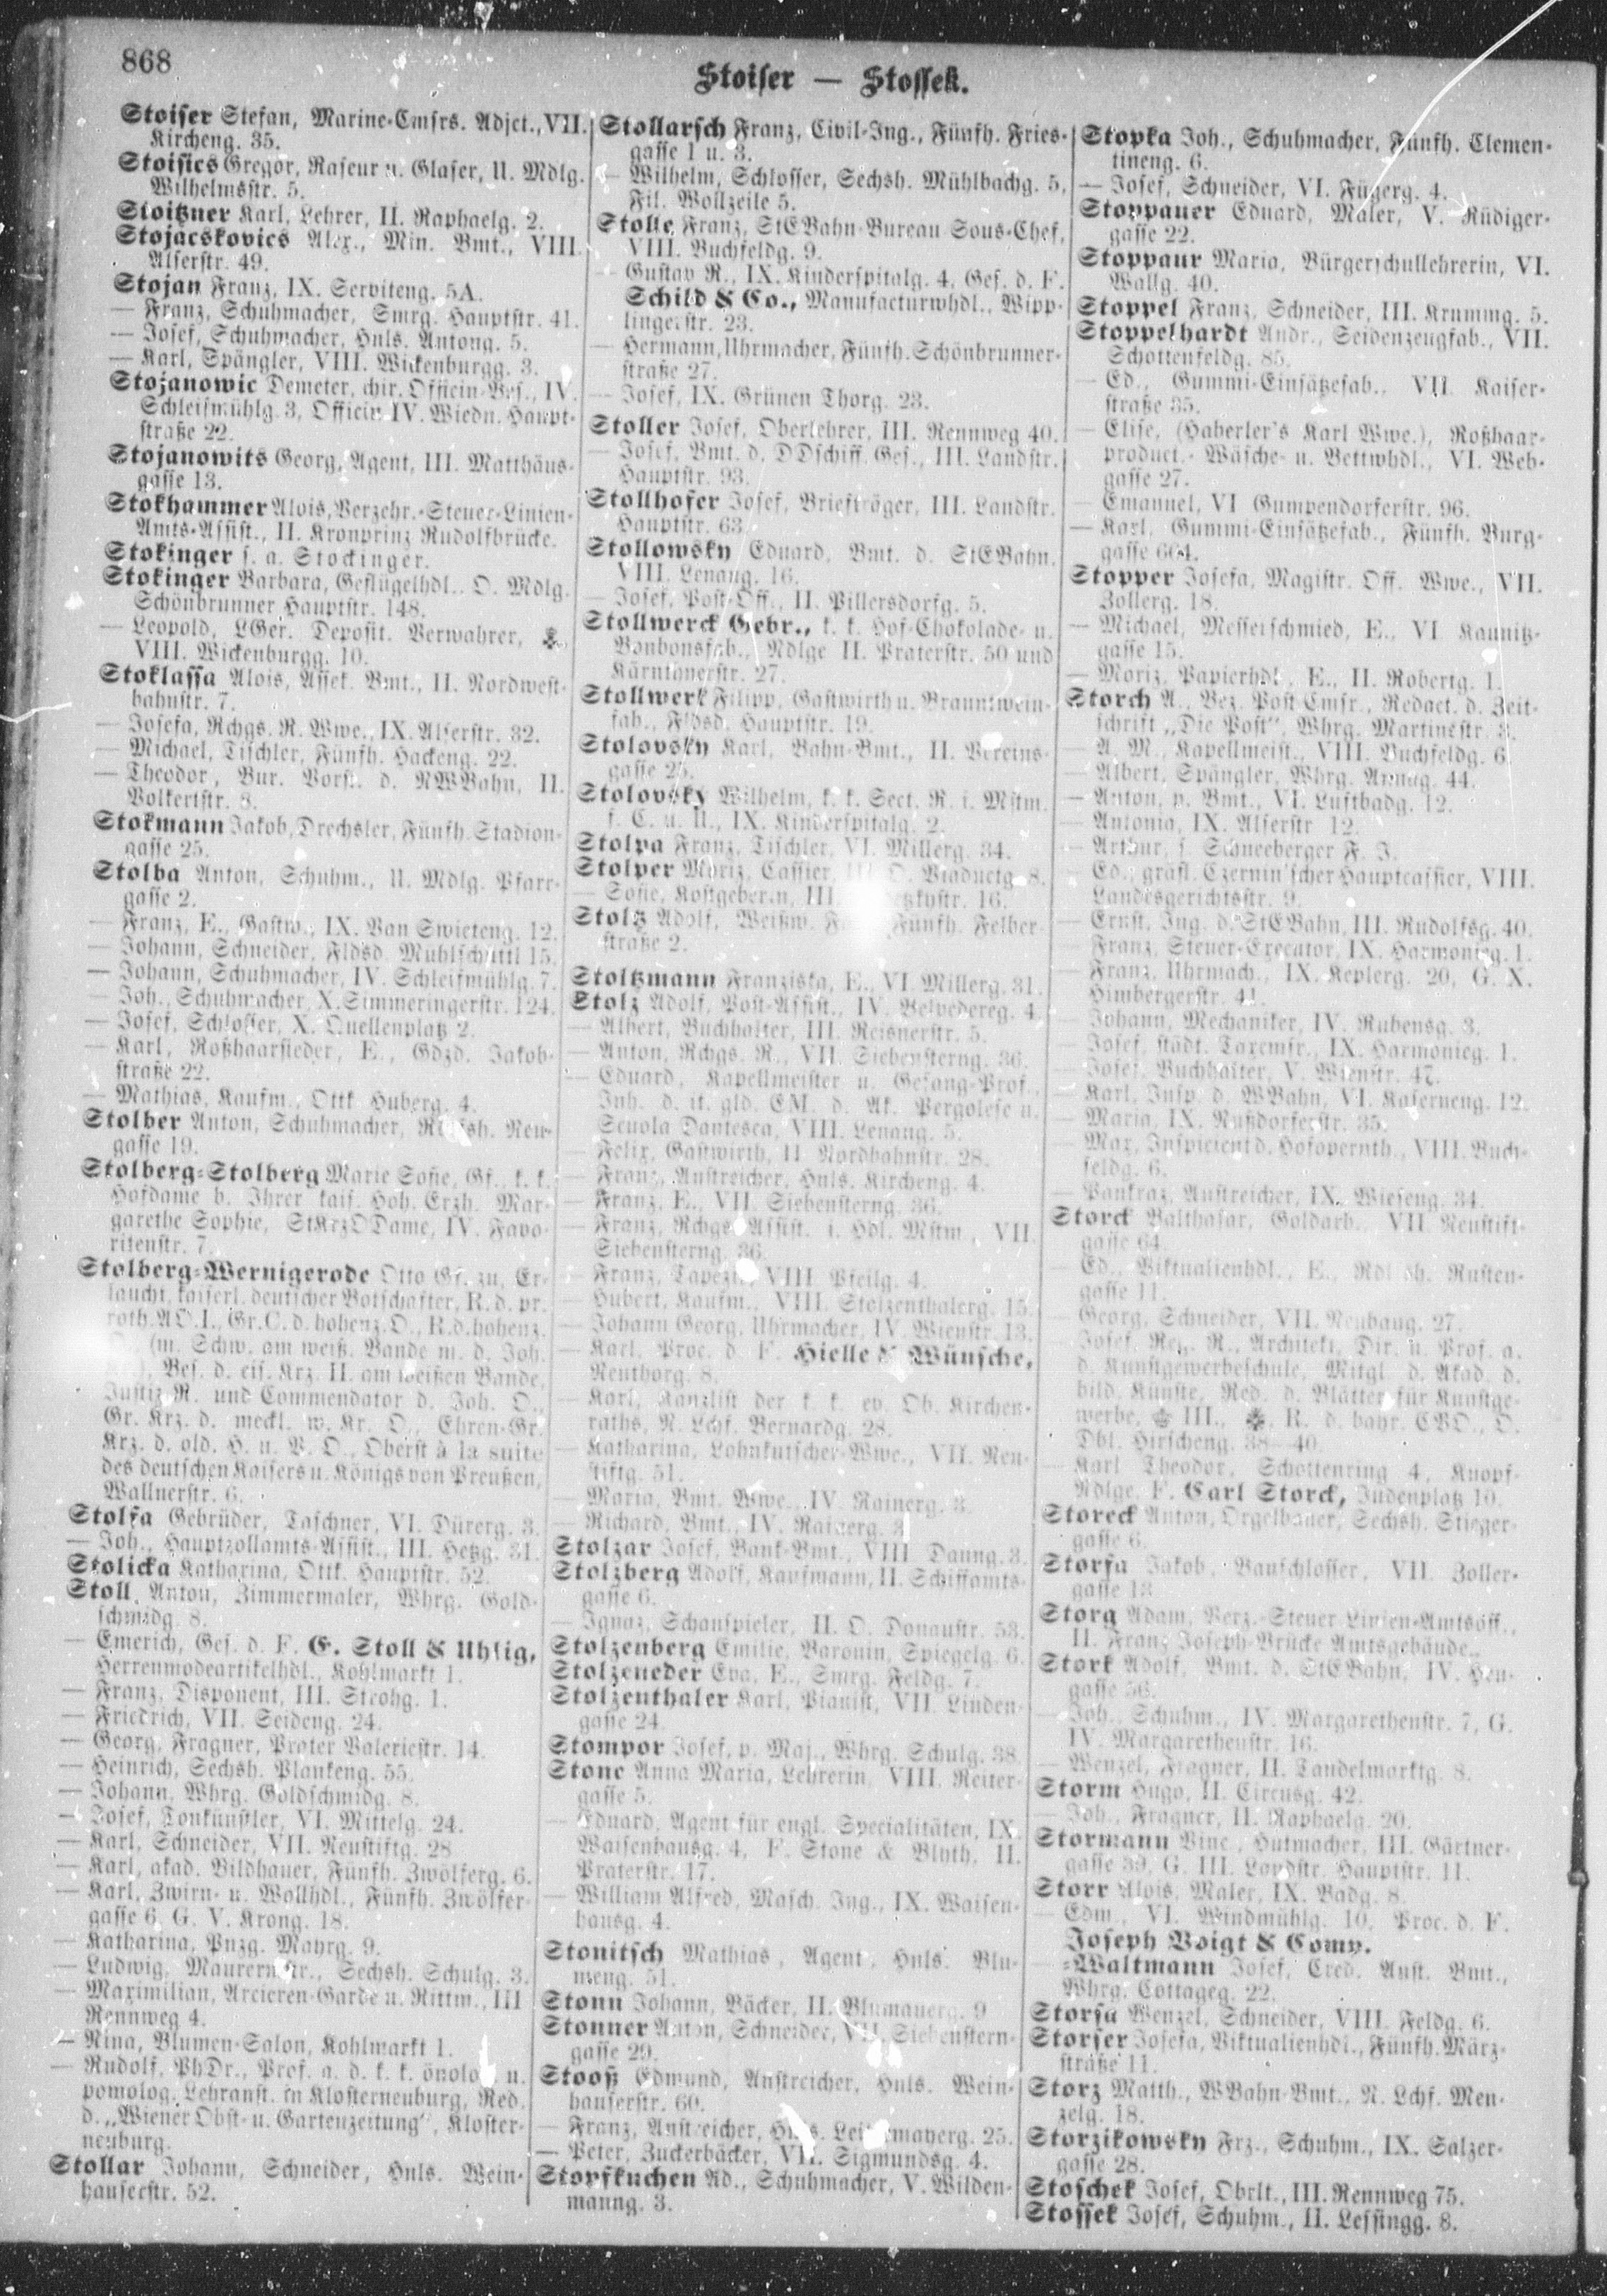 868
Stoiser — Stossek.
Stoiser Stefan, Marine-Cmsrs. Adjct., VII.
Kircheng. 35.
Stoisics Gregor, Raseur u. Glaser, U. Mdlg.
Wilhelmsstr. 5.
Stoitzner Karl, Lehrer, II. Raphaelg. 2.
Stojacskovics Alex., Min. Bmt., VIII.
Alserstr. 49.
Stojan Franz, IX. Serviteng. 5A.
— Franz, Schuhmacher, Smrg. Hauptstr. 41.
— Josef, Schuhmacher, Hnls. Antong. 5.
— Karl, Spängler, VIII. Wickenburgg. 3.
Stojanowic Demeter, chir. Officin-Bes., IV.
Schleifmühlg. 3, Officin IV. Wiedn. Haupt-
straße 22.
Stojanowits Georg, Agent, III. Matthäus-
gasse 13.
Stokhammer Alois, Verzehr.-Steuer-Linien-
Amts-Assist., II. Kronprinz Rudolfbrücke.
Stokinger s. a. Stockinger.
Stokinger Barbara, Geflügelhdl., O. Mdlg.
Schönbrunner Hauptstr. 148.
— Leopold, LGer. Deposit. Verwahrer,
VIII. Wickenburgg. 10.
Stoklassa Alois, Assek. Bmt., II. Nordwest-
bahnstr. 7.
— Josefa, Rchgs. R. Wwe., IX. Alserstr. 32.
— Michael, Tischler, Fünfh. Hackeng. 22.
— Theodor, Bur. Vorst. d. NWBahn, II.
Volkertstr. 8.
Stokmann Jakob, Drechsler, Fünfh. Stadion-
gasse 25.
Stolba Anton, Schuhm., U. Mdlg. Pfarr-
gasse 2.
— Franz, E., Gastw., IX. Van Swieteng. 12.
— Johann, Schneider, Fldsd. Mühlschüttl 15.
— Johann, Schuhmacher, IV. Schleifmühlg. 7.
— Joh., Schuhmacher, X. Simmeringerstr. 124.
— Josef, Schlosser, X. Quellenplatz 2.
— Karl, Roßhaarsieder, E., Gdzd. Jakob-
straße 22.
— Mathias, Kaufm., Ottk. Huberg. 4.
Stolber Anton, Schuhmacher, Neu-
gasse 19.
Stolberg-Stolberg Marie Sofie, Gf., k. k.
Hofdame b. Ihrer kais. Hoh. Erzh. Mar-
garethe Sophie, StKrzODame, IV. Favo-
ritenstr. 7.
Stolberg-Wernigerode Otto Gf. zu, Er-
laucht, kaiserl. deutscher Botschafter, R. d. pr.
roth. AO. I., Gr. C. d. hohenz. O., R. d. hohenz.
(m. Schw. am weiß. Bande m. d. Joh.
Bes. d. eis. Krz. II. am weißen Bande,
Justiz R. und Commendator d. Joh. O.,
Gr. Krz. d. meckl. w. Kr. O., Ehren-Gr.
Krz. d. old. H. u. V. O., Oberst à la suite
des deutschen Kaisers u. Königs von Preußen,
Wallnerstr. 6.
Stolfa Gebrüder, Taschner, VI. Dürerg. 3.
— Joh., Hauptzollamts-Assist., III. Hetzg. 31.
Stolicka Katharina, Ottk. Hauptstr. 52.
Stoll Anton, Zimmermaler, Whrg. Gold-
schmidg. 8.
— Emerich, Ges. d. F. E. Stoll & Uhlig,
Herrenmodeartikelhdl., Kohlmarkt 1.
— Franz, Disponent, III. Strohg. 1.
— Friedrich, VII. Seideng. 24.
— Georg, Fragner, Prater Valeriestr. 14.
— Heinrich, Sechsh. Plankeng. 55.
— Johann, Whrg. Goldschmidg. 8.
— Josef, Tonkünstler, VI. Mittelg. 24.
— Karl, Schneider, VII. Neustiftg. 28
— Karl, akad. Bildhauer, Fünfh. Zwölferg. 6.
— Karl, Zwirn- u. Wollhdl., Fünfh. Zwölfer-
gasse 6, G. V. Krong. 18.
— Katharina, Pnzg. Mayrg. 9.
— Ludwig, Maurermstr., Sechsh. Schulg. 3.
— Maximilian, Arcieren-Garde u. Rittm., III
Rennweg 4.
— Nina, Blumen-Salon, Kohlmarkt 1.
— Rudolf, PhDr., Prof. a. d. k. k. önolog. u.
pomolog. Lehranst. in Klosterneuburg, Red.
d. „Wiener Obst- u. Gartenzeitung“, Kloster-
neuburg.
Stollar Johann, Schneider, Hnls. Wein-
hauserstr. 52.
Stollarsch Franz, Civil-Ing., Fünfh. Fries-
gasse 1 u. 3.
— Wilhelm, Schlosser, Sechsh. Mühlbachg. 5,
Fil. Wollzeile 5.
Stolle Franz, StEBahn-Bureau Sous-Chef,
VIII. Buchfeldg. 9.
— Gustav R., IX. Kinderspitalg. 4, Ges. d. F.
Schild & Co., Manufacturwhdl., Wipp-
lingerstr. 23.
— Hermann, Uhrmacher, Fünfh. Schönbrunner-
straße 27.
— Josef, IX. Grünen Thorg. 23.
Stoller Josef, Oberlehrer, III. Rennweg 40.
— Josef, Bmt. d. DDschiff. Ges., III. Landstr.
Hauptstr. 93.
Stollhofer Josef, Briefträger, III. Landstr.
Hauptstr. 63.
Stollowsky Eduard, Bmt. d. StEBahn,
VIII. Lenaug. 16.
— Josef, Post-Off., II. Pillersdorfg. 5.
Stollwerck Gebr., k. k. Hof-Chokolade- u.
Bonbonsfab., Ndlge II. Praterstr. 50 und
Kärntnerstr. 27.
Stollwerk Filipp, Gastwirth u. Branntwein-
fab., Fldsd. Hauptstr. 19.
Stolovsky Karl, Bahn-Bmt., II. Vereins-
gasse 25.
Stolovsky Wilhelm, k. k. Sect. R. i. Mstm.
f. C. u. U., IX. Kinderspitalg. 2.
Stolpa Franz, Tischler, VI. Millerg. 34.
Stolper Moriz, Cassier, III. O. Viaductg. 8.
— Sofie, Kostgeberin, III. 16.
Stoltz Adolf, Weißw. Fünfh. Felber-
straße 2.
Stoltzmann Franziska, E., VI. Millerg. 31.
Stolz Adolf, Post-Assist., IV. Belvedereg. 4.
— Albert, Buchhalter, III. Reisnerstr. 5.
— Anton, Rchgs. R., VII. Siebensterng. 36.
— Eduard, Kapellmeister u. Gesang-Prof.,
Inh. d. it. gld. CM. d. Ak. Pergolese u.
Scuola Dantesca, VIII. Lenaug. 5.
— Felix, Gastwirth, II. Nordbahnstr. 28.
— Franz, Anstreicher, Hnls. Kircheng. 4.
— Franz, E., VII. Siebensterng. 36.
— Franz, Rchgs. Assist. i. Hdl. Mstm., VII.
Siebensterng. 36.
— Franz, Tapez., VIII. Pfeilg. 4.
— Hubert, Kaufm., VIII. Stolzenthalerg. 15.
— Johann Georg, Uhrmacher, IV. Wienstr. 13.
— Karl, Proc. d. F. Hielle & Wünsche,
Neuthorg. 8.
— Karl, Kanzlist der k. k. ev. Ob. Kirchen-
raths, N. Lchf. Bernardg. 28.
— Katharina, Lohnkutscher-Wwe., VII. Neu-
stiftg. 51.
— Maria, Bmt. Wwe., IV. Rainerg. 3.
— Richard, Bmt., IV. Rainerg. 3
Stolzar Josef, Bank-Bmt., VIII. Daung. 3.
Stolzberg Adolf, Kaufmann, II. Schiffamts-
gasse 6.
— Ignaz, Schauspieler, II. O. Donaustr. 53.
Stolzenberg Emilie, Baronin, Spiegelg. 6.
Stolzeneder Eva, E., Smrg. Feldg. 7.
Stolzenthaler Karl, Pianist, VII. Linden-
gasse 24.
Stompor Josef, p. Maj., Whrg. Schulg. 38.
Stone Anna Maria, Lehrerin, VIII. Reiter-
gasse 5.
— Eduard, Agent für engl. Specialitäten, IX.
Waisenhausg. 4, F. Stone & Blyth, II.
Praterstr. 17.
— William Alfred, Masch. Ing., IX. Waisen-
hausg. 4.
Stonitsch Mathias, Agent, Hnls. Blu-
meng. 51.
Stonn Johann, Bäcker, II. Blumauerg. 9
Stonner Anton, Schneider, VII. Siebenstern-
gasse 29.
Stooß Edmund, Anstreicher, Hnls. Wein-
hauserstr. 60.
— Franz, Anstreicher, Hnls. Leitermayerg. 25.
— Peter, Zuckerbäcker, VII. Sigmundsg. 4.
Stopfkuchen Ad., Schuhmacher, V. Wilden-
manng. 3.
Stopka Joh., Schuhmacher, Fünfh. Clemen-
tineng. 6.
— Josef, Schneider, VI. Fügerg. 4.
Stoppauer Eduard, Maler, V. Rüdiger-
gasse 22.
Stoppaur Maria, Bürgerschullehrerin, VI.
Wallg. 40.
Stoppel Franz, Schneider, III. Krummg. 5.
Stoppelhardt Andr., Seidenzeugfab., VII.
Schottenfeldg. 85.
— Ed., Gummi-Einsätzefab., VII. Kaiser-
straße 35.
— Elise, (Haberler's Karl Wwe.), Roßhaar-
product.- Wäsche- u. Bettwhdl., VI. Web-
gasse 27.
— Emanuel, VI Gumpendorferstr. 96.
— Karl, Gummi-Einsätzefab., Fünfh. Burg-
gasse
Stopper Josefa, Magistr. Off. Wwe., VII.
Zollerg. 18.
— Michael, Messerschmied, E., VI Kaunitz-
gasse 15.
— Moriz, Papierhdl., E., II. Robertg. 1.
Storch A., Bez. Post Cmsr., Redact. d. Zeit-
schrift „Die Post“, Whrg. Martinsstr.
— A. M., Kapellmeist., VIII. Buchfeldg. 6.
— Albert, Spängler, Whrg. Annag. 44.
— Anton, p. Bmt., VI. Luftbadg. 12.
— Antonia, IX. Alserstr. 12.
— Arthur, s. Schneeberger F. J.
— Ed., gräfl. Czernin'scher Hauptcassier, VIII.
Landesgerichtsstr. 9.
— Ernst, Ing. d. StEBahn, III. Rudolfsg. 40.
— Franz, Steuer-Executor, IX. Harmonieg. 1.
— Franz, Uhrmach., IX. Keplerg. 20, G. X.
Himbergerstr. 41.
— Johann, Mechaniker, IV. Rubensg. 3.
— Josef, städt. Taxcmsr., IX. Harmonieg. 1.
— Josef, Buchhalter, V. Wienstr. 47.
— Karl, Insp. d. WBahn, VI. Kaserneng. 12.
— Maria, IX. Nußdorferstr. 35.
— Max, Inspicient d. Hofopernth., VIII. Buch-
feldg. 6.
— Pankraz, Anstreicher, IX. Wieseng. 34.
Storck Balthasar, Goldarb., VII. Neustift-
gasse 64.
— Ed., Viktualienhdl., E., Rusten-
gasse 11.
— Georg, Schneider, VII. Neubaug. 27.
— Josef, Reg. R., Architekt, Dir. u. Prof. a.
d. Kunstgewerbeschule, Mitgl. d. Akad. d.
bild. Künste, Red. d. Blätter für Kunstge-
werbe, III., R. d. bayr. CVO., O.
Dbl. Hirscheng. 38—40.
— Karl Theodor, Schottenring 4, Knopf-
Ndlge, F. Carl Storck, Judenplatz 10.
Storeck Anton, Orgelbauer, Sechsh. Stieger-
gasse 6.
Storfa Jakob, Bauschlosser, VII. Zoller-
gasse 13
Storg Adam, Verz.-Steuer Linien-Amtsoff.,
II. Franz Joseph-Brücke Amtsgebäude.
Stork Adolf, Bmt. d. StEBahn, IV. Heu-
gasse 56.
— Joh., Schuhm., IV. Margarethenstr. 7, G.
IV. Margarethenstr. 16.
— Wenzel, Fragner, II. Tandelmarktg. 8.
Storm Hugo, II. Circusg. 42.
— Joh., Fragner, II. Raphaelg. 20.
Stormann Vinc., Hutmacher, III. Gärtner-
gasse 39, G. III. Landstr. Hauptstr. 11.
Storr Alois, Maler, IX. Badg. 8.
— Edm., VI. Windmühlg. 10, Proc. d. F.
Joseph Voigt & Comp.
— -Waltmann Josef, Cred. Anst. Bmt.,
Whrg. Cottageg. 22.
Storsa Wenzel, Schneider, VIII. Feldg. 6.
Storser Josefa, Viktualienhdl., Fünfh. März-
straße 11.
Storz Matth., WBahn-Bmt., N. Lchf. Men-
zelg. 18.
Storzikowsky Frz., Schuhm., IX. Salzer-
gasse 28.
Stoschek Josef, Obrlt., III. Rennweg 75.
Stossek Josef, Schuhm., II. Lessingg. 8.